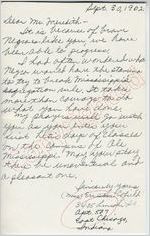 Sept. 30, 1962
Dear Mr. Meredith -
It is because of brave
Negroes like you we have
been able to progress.
I had often wondered what
Negro would have the stamina
to try to break Mississippi
segregation rule. It takes
more than courage to do
what you have done.
My prayers will go with
you as you enter upon
first days of classes
on the campus of Ole
Mississippi. May your stay
there be uneventful and
a pleasant one.
Sincerely yours,
Apt. 527
East Chicago,
Indiana